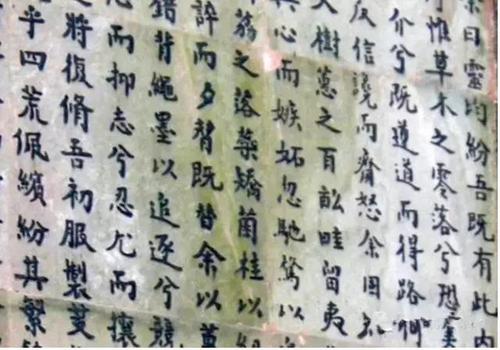 曰靈均紛吾既有此内
惟草木之零落兮恐美
介兮既遵道而得路
反信讒而齌怒余固知
樹蕙之百畝畦留夷
心而嫉妬忽馳騖以
之落英矯菌桂以
誶而夕替既替余以
錯背繩墨以追逐兮競
心而抑志兮忍尤而攘
將復脩吾初服製芰
乎四荒佩繽紛其繁